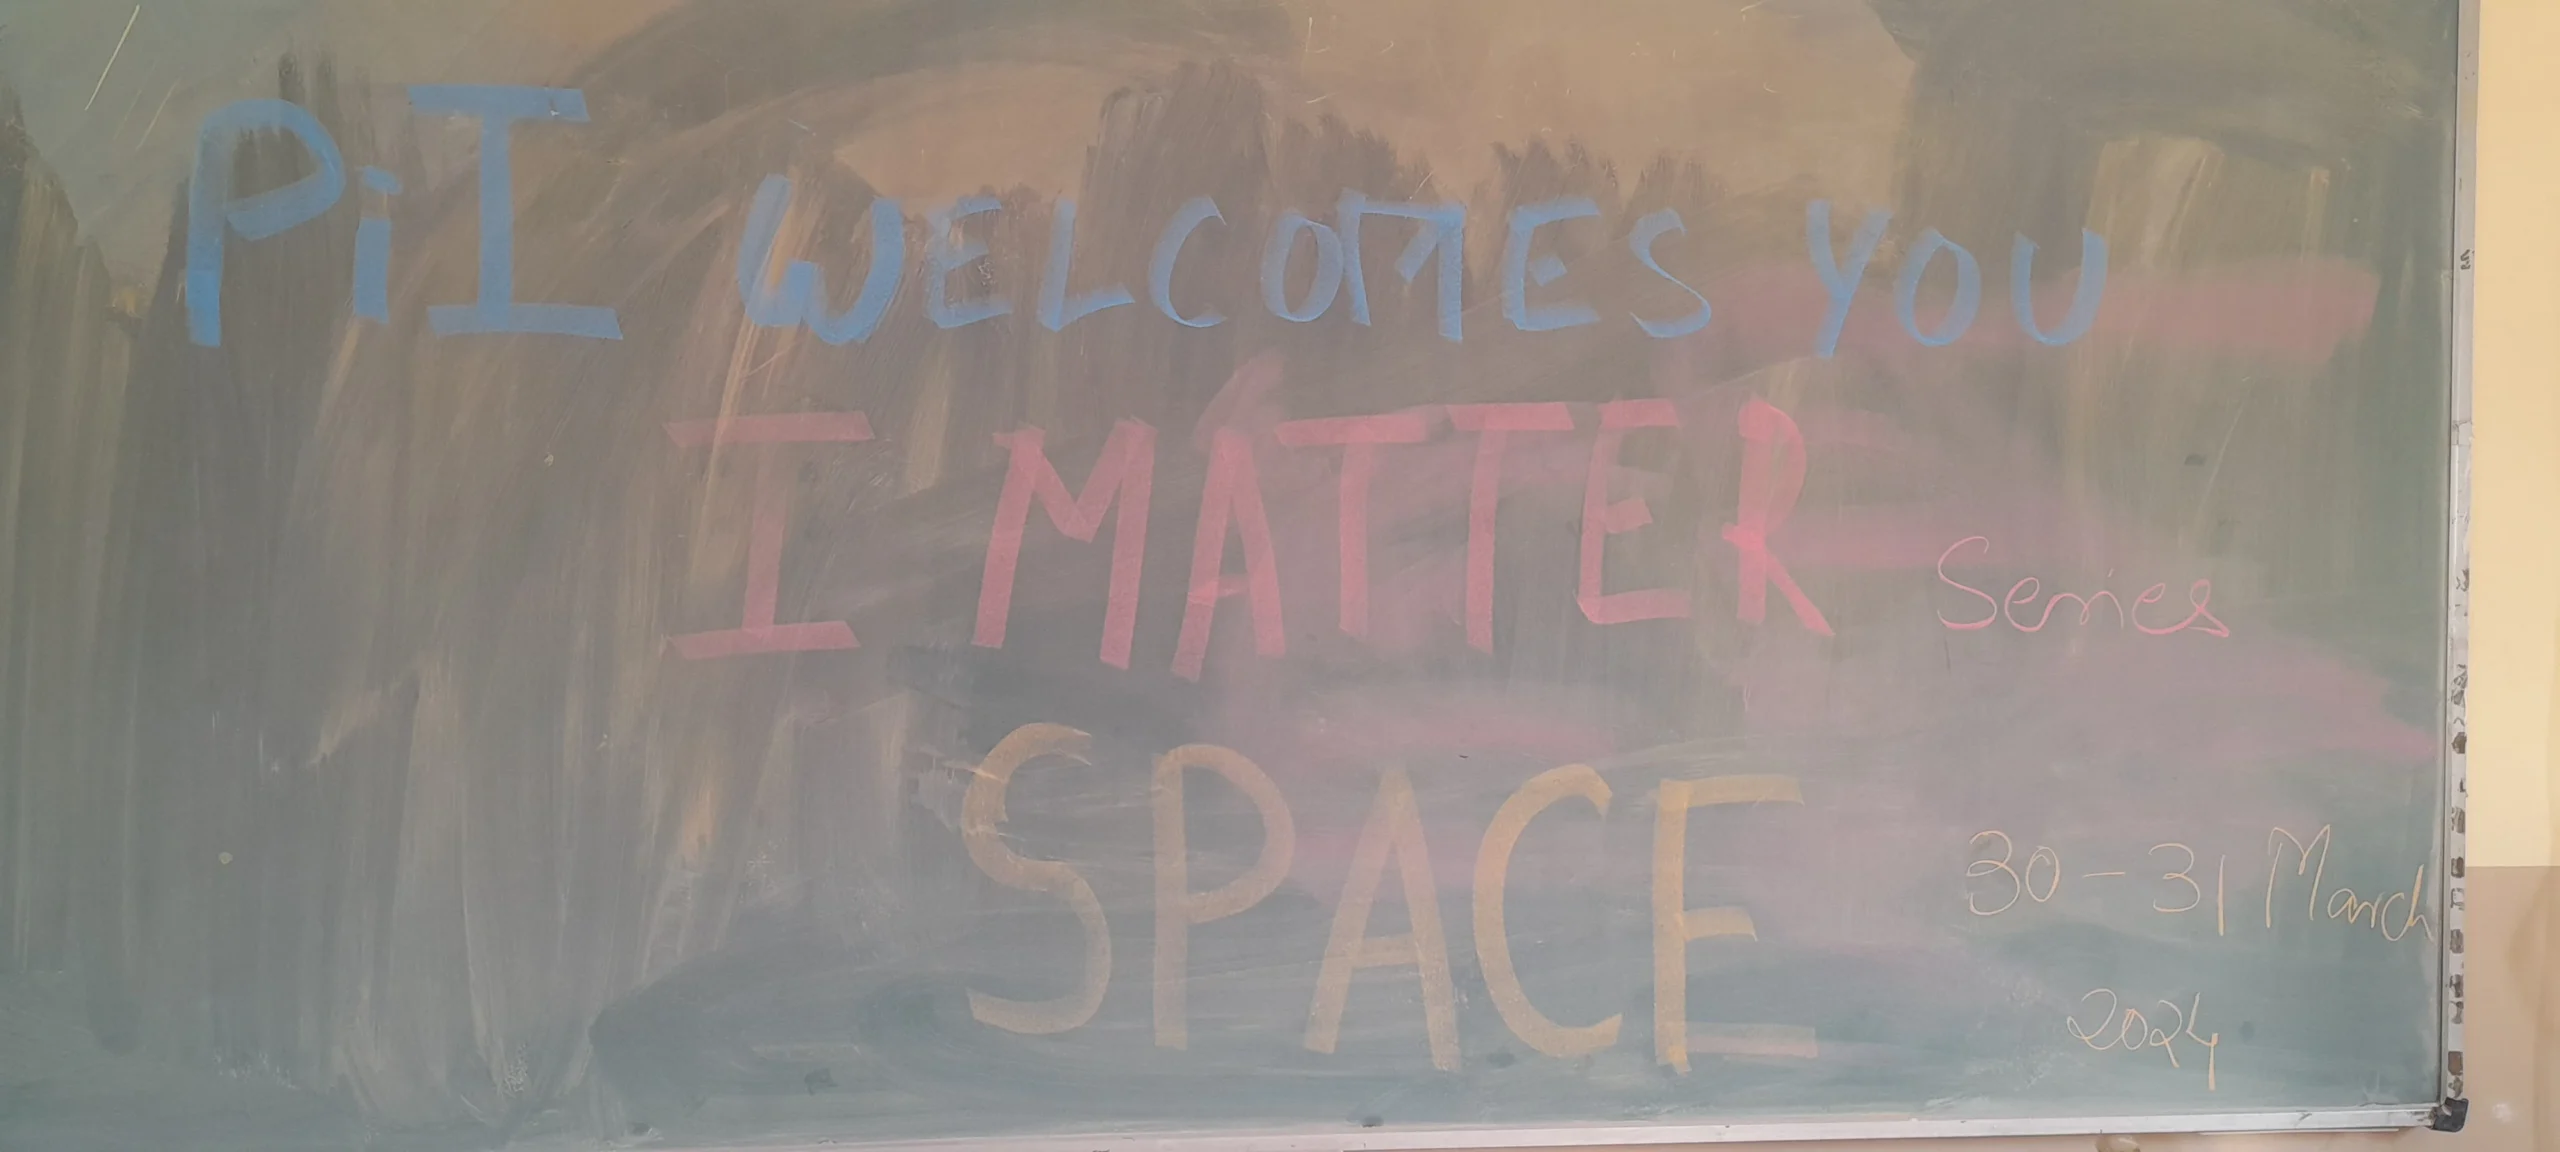 PiI WELCOMES YOU
I MATTER Series
SPACE
30-31 March
2024